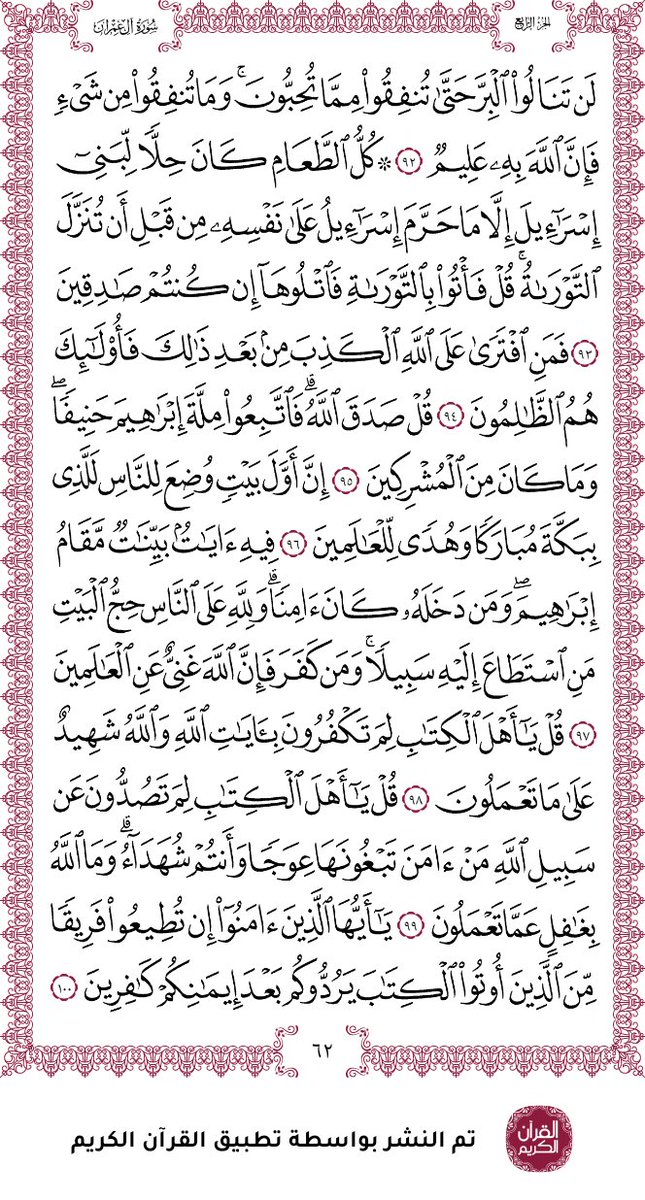 سُورَةُ آلِ عِمْرَانَ
الجزء الرابع
لَن تَنَالُوا۟ ٱلْبِرَّ حَتَّىٰ تُنفِقُوا۟ مِمَّا تُحِبُّونَ ۚ وَمَا تُنفِقُوا۟ مِن شَىْءٍ
فَإِنَّ ٱللَّهَ بِهِۦ عَلِيمٌ ٩٢ ۞ كُلُّ ٱلطَّعَامِ كَانَ حِلًّا لِّبَنِىٓ
إِسْرَٰٓءِيلَ إِلَّا مَا حَرَّمَ إِسْرَٰٓءِيلُ عَلَىٰ نَفْسِهِۦ مِن قَبْلِ أَن تُنَزَّلَ
ٱلتَّوْرَىٰةُ ۗ قُلْ فَأْتُوا۟ بِٱلتَّوْرَىٰةِ فَٱتْلُوهَآ إِن كُنتُمْ صَـٰدِقِينَ
٩٣ فَمَنِ ٱفْتَرَىٰ عَلَى ٱللَّهِ ٱلْكَذِبَ مِنۢ بَعْدِ ذَٰلِكَ فَأُو۟لَـٰٓئِكَ
هُمُ ٱلظَّـٰلِمُونَ ٩٤ قُلْ صَدَقَ ٱللَّهُ ۗ فَٱتَّبِعُوا۟ مِلَّةَ إِبْرَٰهِيمَ حَنِيفًا ۖ
وَمَا كَانَ مِنَ ٱلْمُشْرِكِينَ ٩٥ إِنَّ أَوَّلَ بَيْتٍ وُضِعَ لِلنَّاسِ لَلَّذِى
بِبَكَّةَ مُبَارَكًا وَهُدًى لِّلْعَـٰلَمِينَ ٩٦ فِيهِ ءَايَـٰتٌۢ بَيِّنَـٰتٌ مَّقَامُ
إِبْرَٰهِيمَ ۖ وَمَن دَخَلَهُۥ كَانَ ءَامِنًا ۗ وَلِلَّهِ عَلَى ٱلنَّاسِ حِجُّ ٱلْبَيْتِ
مَنِ ٱسْتَطَاعَ إِلَيْهِ سَبِيلًا ۚ وَمَن كَفَرَ فَإِنَّ ٱللَّهَ غَنِىٌّ عَنِ ٱلْعَـٰلَمِينَ
٩٧ قُلْ يَـٰٓأَهْلَ ٱلْكِتَـٰبِ لِمَ تَكْفُرُونَ بِـَٔايَـٰتِ ٱللَّهِ وَٱللَّهُ شَهِيدٌ
عَلَىٰ مَا تَعْمَلُونَ ٩٨ قُلْ يَـٰٓأَهْلَ ٱلْكِتَـٰبِ لِمَ تَصُدُّونَ عَن
سَبِيلِ ٱللَّهِ مَنْ ءَامَنَ تَبْغُونَهَا عِوَجًا وَأَنتُمْ شُهَدَآءُ ۗ وَمَا ٱللَّهُ
بِغَـٰفِلٍ عَمَّا تَعْمَلُونَ ٩٩ يَـٰٓأَيُّهَا ٱلَّذِينَ ءَامَنُوٓا۟ إِن تُطِيعُوا۟ فَرِيقًا
مِّنَ ٱلَّذِينَ أُوتُوا۟ ٱلْكِتَـٰبَ يَرُدُّوكُم بَعْدَ إِيمَـٰنِكُمْ كَـٰفِرِينَ ١٠٠
٦٢
القرآن
الكريم
تم النشر بواسطة تطبيق القرآن الكريم